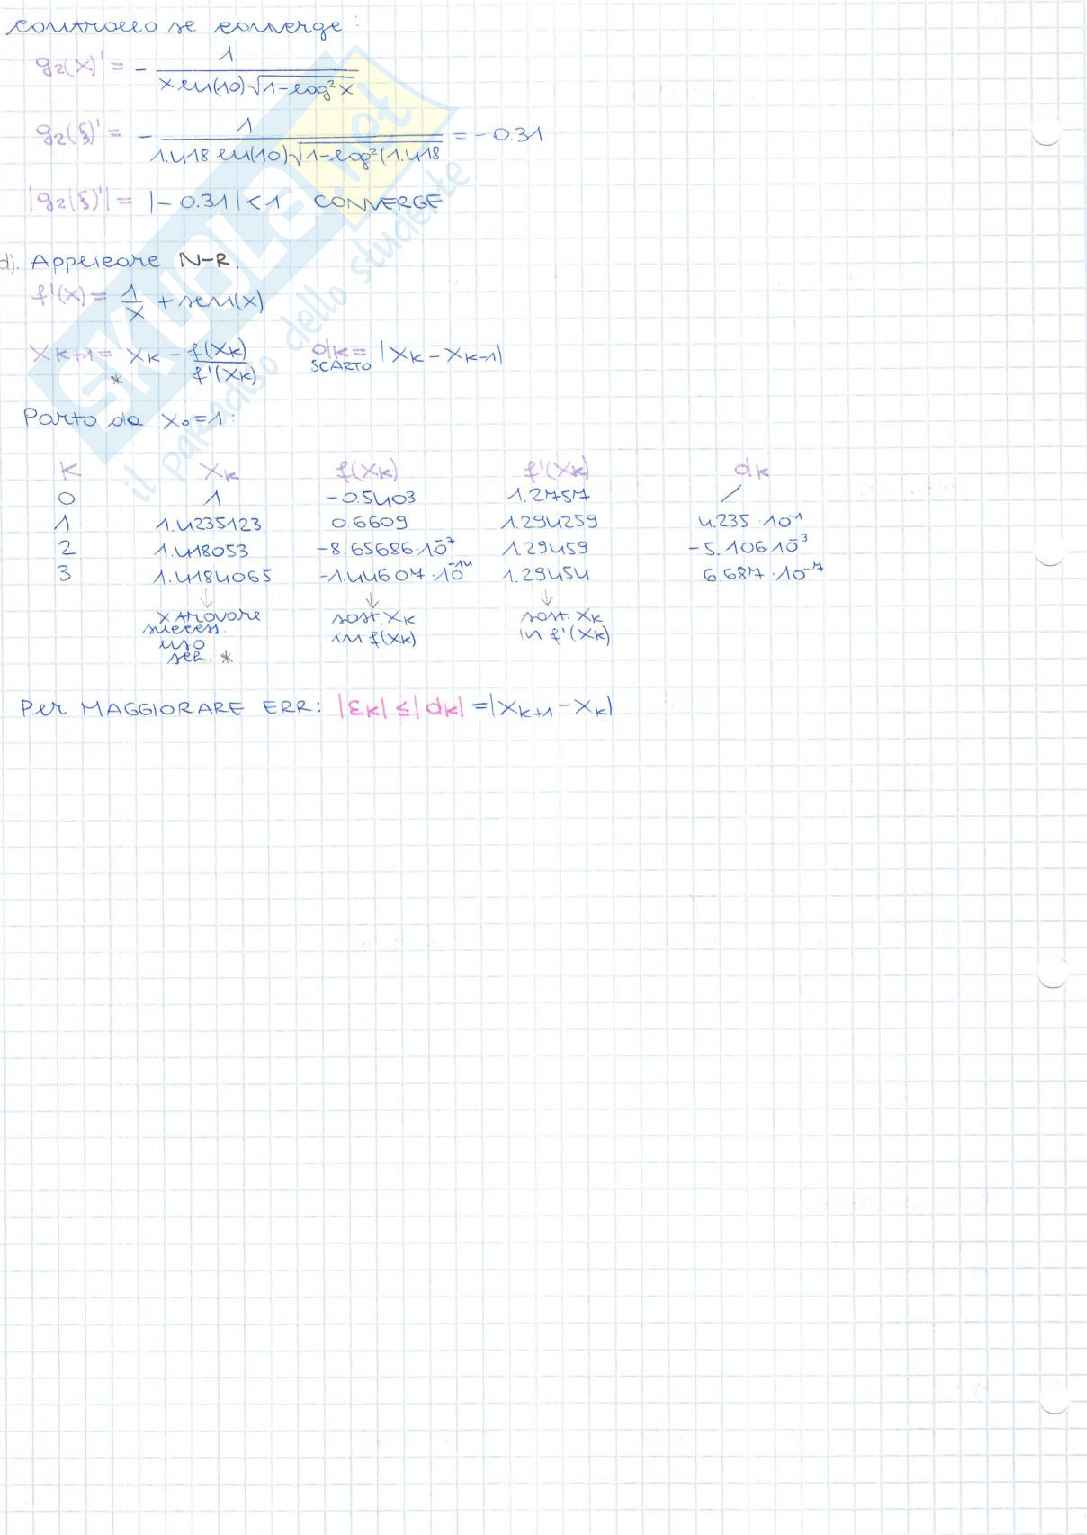 controllo se converge:
g₂(x)' = - 1 / (x ln(10) √(1-log²x))
g₂(ξ)' = - 1 / (1.418 ln(10) √(1-log²(1.418)) = -0.31
|g₂(ξ)'| = |-0.31| < 1 CONVERGE
d). Applicare N-R.
f'(x) = 1/x + sen(x)
xK+1 = xK - f(xK)/f'(xK) dK = |xK - xK-1|
* SCARTO
Parto da x₀=1:
K xK f(xK) f'(xK) dK
0 1 -0.5403 1.2757 /
1 1.4235123 0.6609 1.294259 4.235·10⁻¹
2 1.418053 -8.65686·10⁻⁷ 1.29459 -5.106·10⁻³
3 1.4184065 -1.44607·10⁻¹⁴ 1.29454 6.687·10⁻⁷
x trovare sost xK sost. xK
success. in f(xK) in f'(xK)
uso
*
Per MAGGIORARE ERR: |εK| ≤ |dK| = |xK+1 - xK|
SKUOLA.net
il paradiso dello studente